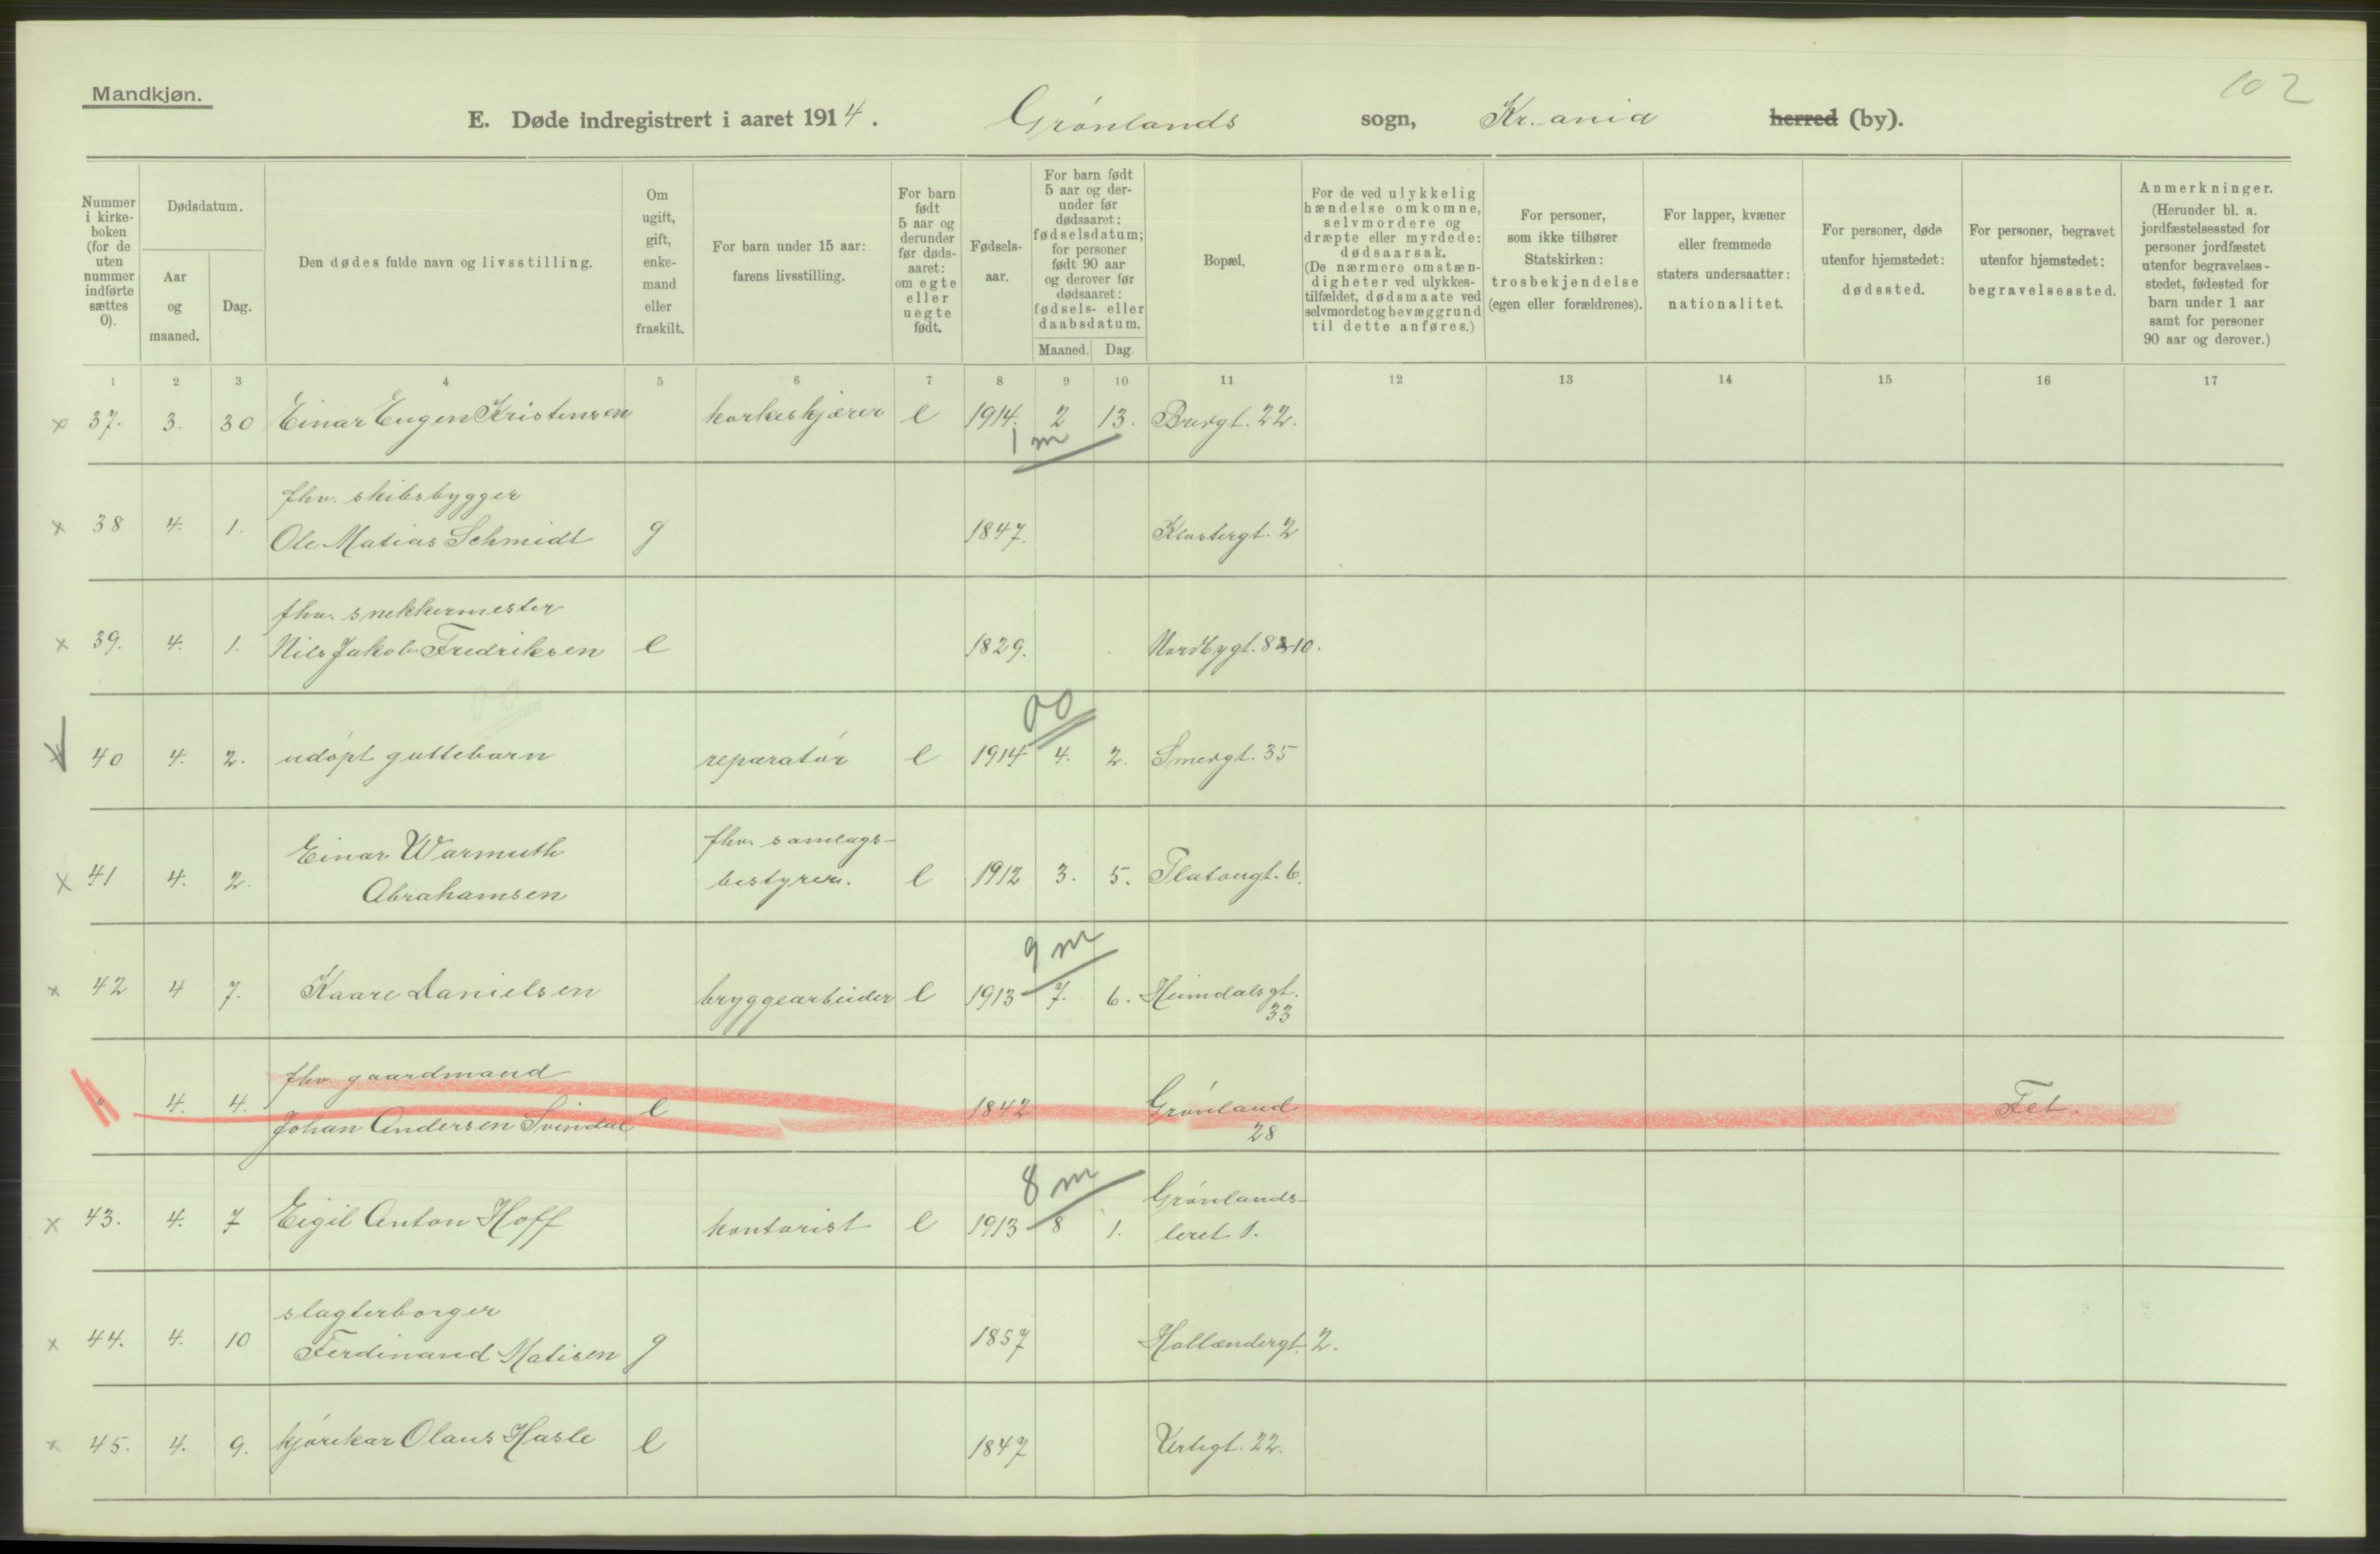 102
Mandkjøn.
E. Døde indregistrert i aaret 1914. Grønlands sogn, Kr.ania herred (by).
Nummer i kirkeboken (for de uten nummer indførte sættes 0).
Dødsdatum.
Aar og maaned.
Dag.
Den dødes fulde navn og livsstilling.
Om ugift, gift, enkemand eller fraskilt.
For barn under 15 aar: farens livsstilling.
For barn født 5 aar og derunder før dødsaaret: om egte eller uegte født.
Fødselsaar.
For barn født 5 aar og derunder før dødsaaret: fødselsdatum; for personer født 90 aar og derover før dødsaaret: fødsels- eller daabsdatum.
Maaned. Dag.
Bopæl.
For de ved ulykkelig hændelse omkomne, selvmordere og dræpte eller myrdede: dødsaarsak. (De nærmere omstændigheter ved ulykkestilfældet, dødsmaate ved selvmordet og bevæggrund til dette anføres.)
For personer, som ikke tilhører Statskirken: trosbekjendelse (egen eller forældrenes).
For lapper, kvæner eller fremmede staters undersaatter: nationalitet.
For personer, døde utenfor hjemstedet: dødssted.
For personer, begravet utenfor hjemstedet: begravelsessted.
Anmerkninger. (Herunder bl. a. jordfæstelsessted for personer jordfæstet utenfor begravelsesstedet, fødested for barn under 1 aar samt for personer 90 aar og derover.)
1 2 3 4 5 6 7 8 9 10 11 12 13 14 15 16 17
x 37. 3. 30 Einar Eugen Kristensen korkeskjærer e 1914. 2 13. Burgt. 22.
1 m
fhv. skibsbygger
x 38 4. 1. Ole Matias Schmidt g 1847. Klostergt. 2
fhv. snekkermester
x 39. 4. 1. Nils Jakob Fredriksen e 1829. Nordbygt. 8-10.
00
40 4. 2. udøpt guttebarn reparatør e 1914 4. 2. Smedgt. 35
Einar Warmuth fhv. samlags-
x 41 4. 2. Abrahamsen bestyrer. e 1912 3. 5. Platougt. 6.
9 m
x 42 4 7. Kaare Danielsen bryggearbeider e 1913 7. 6. Heimdalsgt.
33
fhv. gaardmand
" 4. 4. Johan Andersen Svindal e 1842 Grønland Fet.
28
8 m
Grønlands-
x 43. 4. 7 Eigil Anton Hoff kontorist e 1913 8 1. leret 1.
slagterborger
x 44. 4. 10 Ferdinand Matisen g 1857 Hollændergt. 2.
x 45. 4. 9. kjørekar Olaus Hasle e 1847 Urtegt. 22.